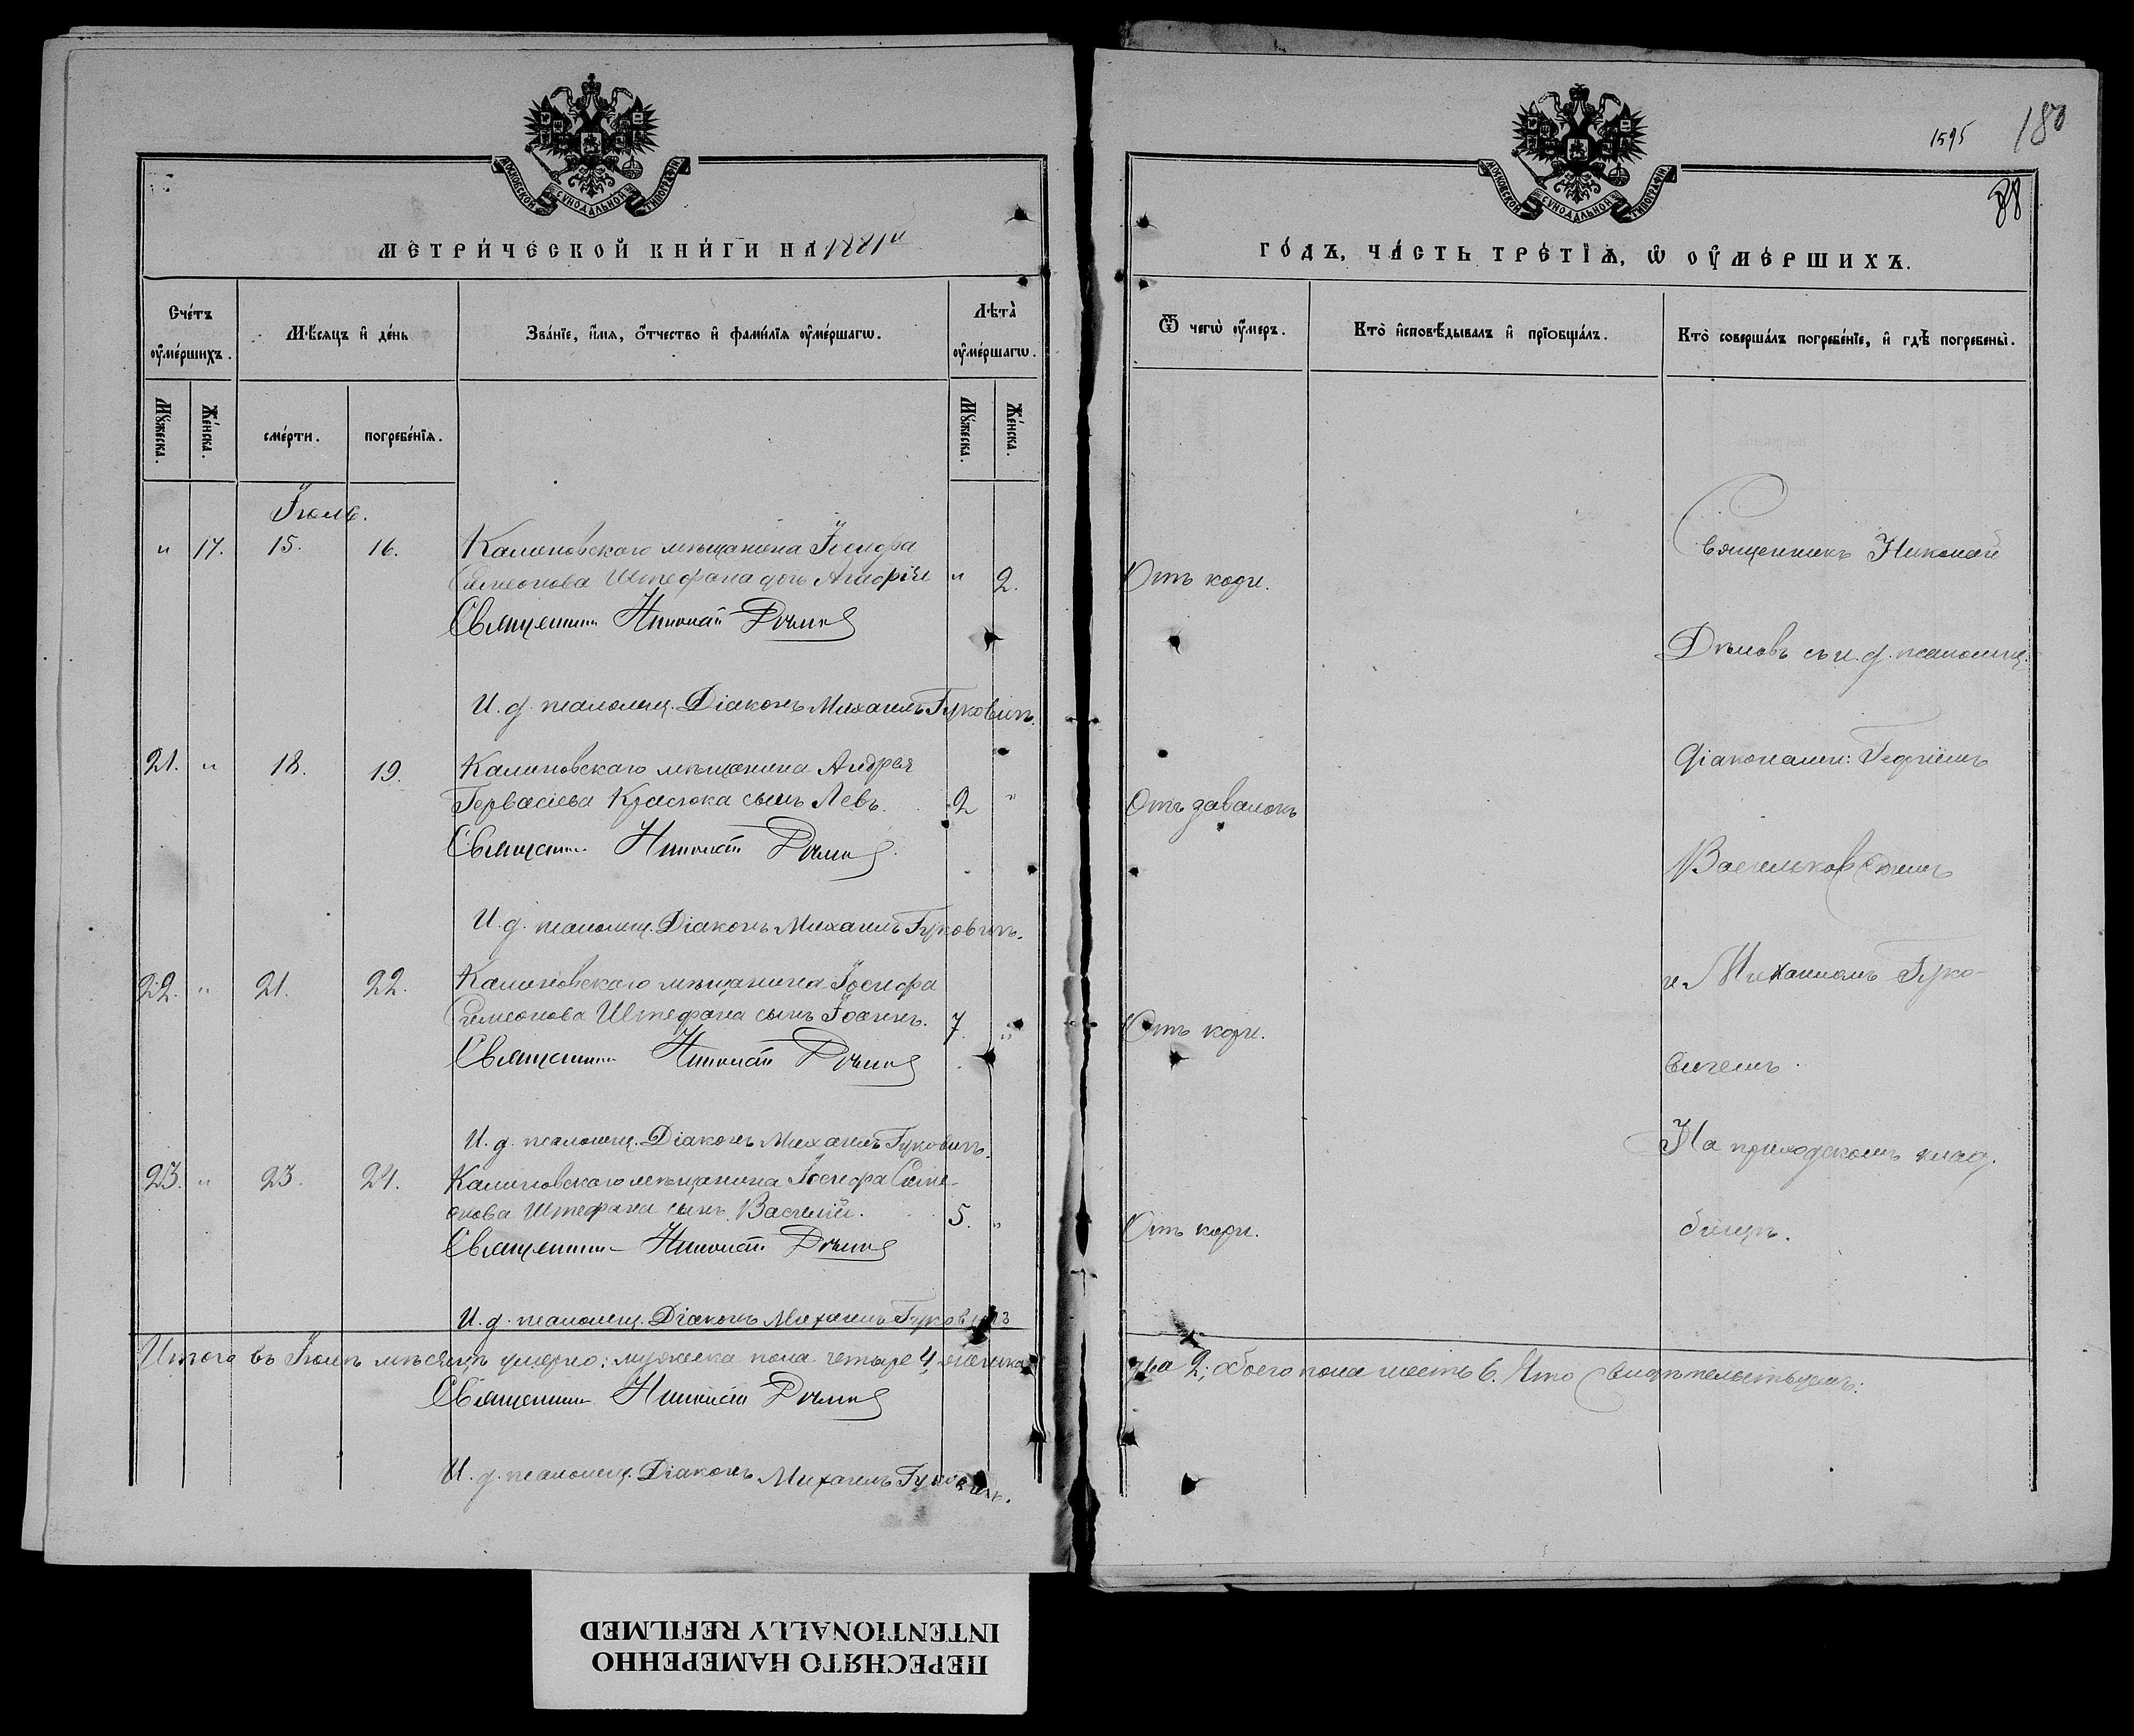 МОСКОВСКОЙ СѴНОДАЛЬНОЙ ТИПОГРАФІИ
МЕТРИ́ЧЕСКОЙ КНИ́ГИ НА 1881й
Сче́тъ ᲂу҆ме́ршихъ.
Мѣ́сяцъ и҆ де́нь
Зва́нїе, и҆́мя, ѻ҆́тчество и҆ фами́лїя ᲂу҆ме́ршагѡ.
Лѣта̀ ᲂу҆ме́ршагѡ.
Мꙋ́жеска.
Же́нска.
сме́рти.
погребе́нїя.
Мꙋ́жеска.
Же́нска.
Іюль.
" 17. 15. 16. Калиновскаго мѣщанина Іосифа
Симеонова Штефана дочь " 2.
Священникъ Николай
И. д. псаломщ. Діаконъ Михаилъ Гуковичъ.
21. " 18. 19. Калиновскаго мѣщанина Андрея
Гервасіева Красюка сынъ Левъ. 2 "
Священникъ Николай
И. д. псаломщ. Діаконъ Михаилъ Гуковичъ.
22. " 21. 22. Калиновскаго мѣщанина Іосифа
Симеонова Штефана сынъ Іоаннъ. 7. "
Священникъ Николай
И. д. псаломщ. Діаконъ Михаилъ Гуковичъ.
23. " 23. 24. Калиновскаго мѣщанина Іосифа Симе-
онова Штефана сынъ Василій. 5. "
Священникъ Николай
И. д. псаломщ. Діаконъ Михаилъ Гуковичъ
Итого въ Іюлѣ мѣсяцѣ умерло: мужеска пола четыре 4, женска
Священникъ Николай
И. д. псаломщ. Діаконъ Михаилъ Гуковичъ.
1595 180
88
МОСКОВСКОЙ СѴНОДАЛЬНОЙ ТИПОГРАФІИ
ГО́ДЪ, ЧА́СТЬ ТРЕ́ТЇѦ, Ѡ҆ ОУ҆МЕ́РШИХЪ.
Ѿ чегѡ̀ ᲂу҆́меръ.
Кто̀ и҆сповѣ́дывалъ и҆ прїобща́лъ.
Кто̀ соверша́лъ погребе́нїе, и҆ гдѣ̀ погребены̀.
Отъ кори.
Отъ завалокъ
Отъ кори.
Отъ кори.
Священникъ Николай
съ и. д. псаломщ.
діаконами: Георгіемъ
Васильковскимъ
и Михаиломъ Гуко-
вичемъ.
На приходскомъ клад.
бищѣ.
2; обоего пола шесть 6. Что свидѣтельствуемъ:
ПЕРЕСНЯТО НАМЕРЕННО
INTENTIONALLY REFILMED